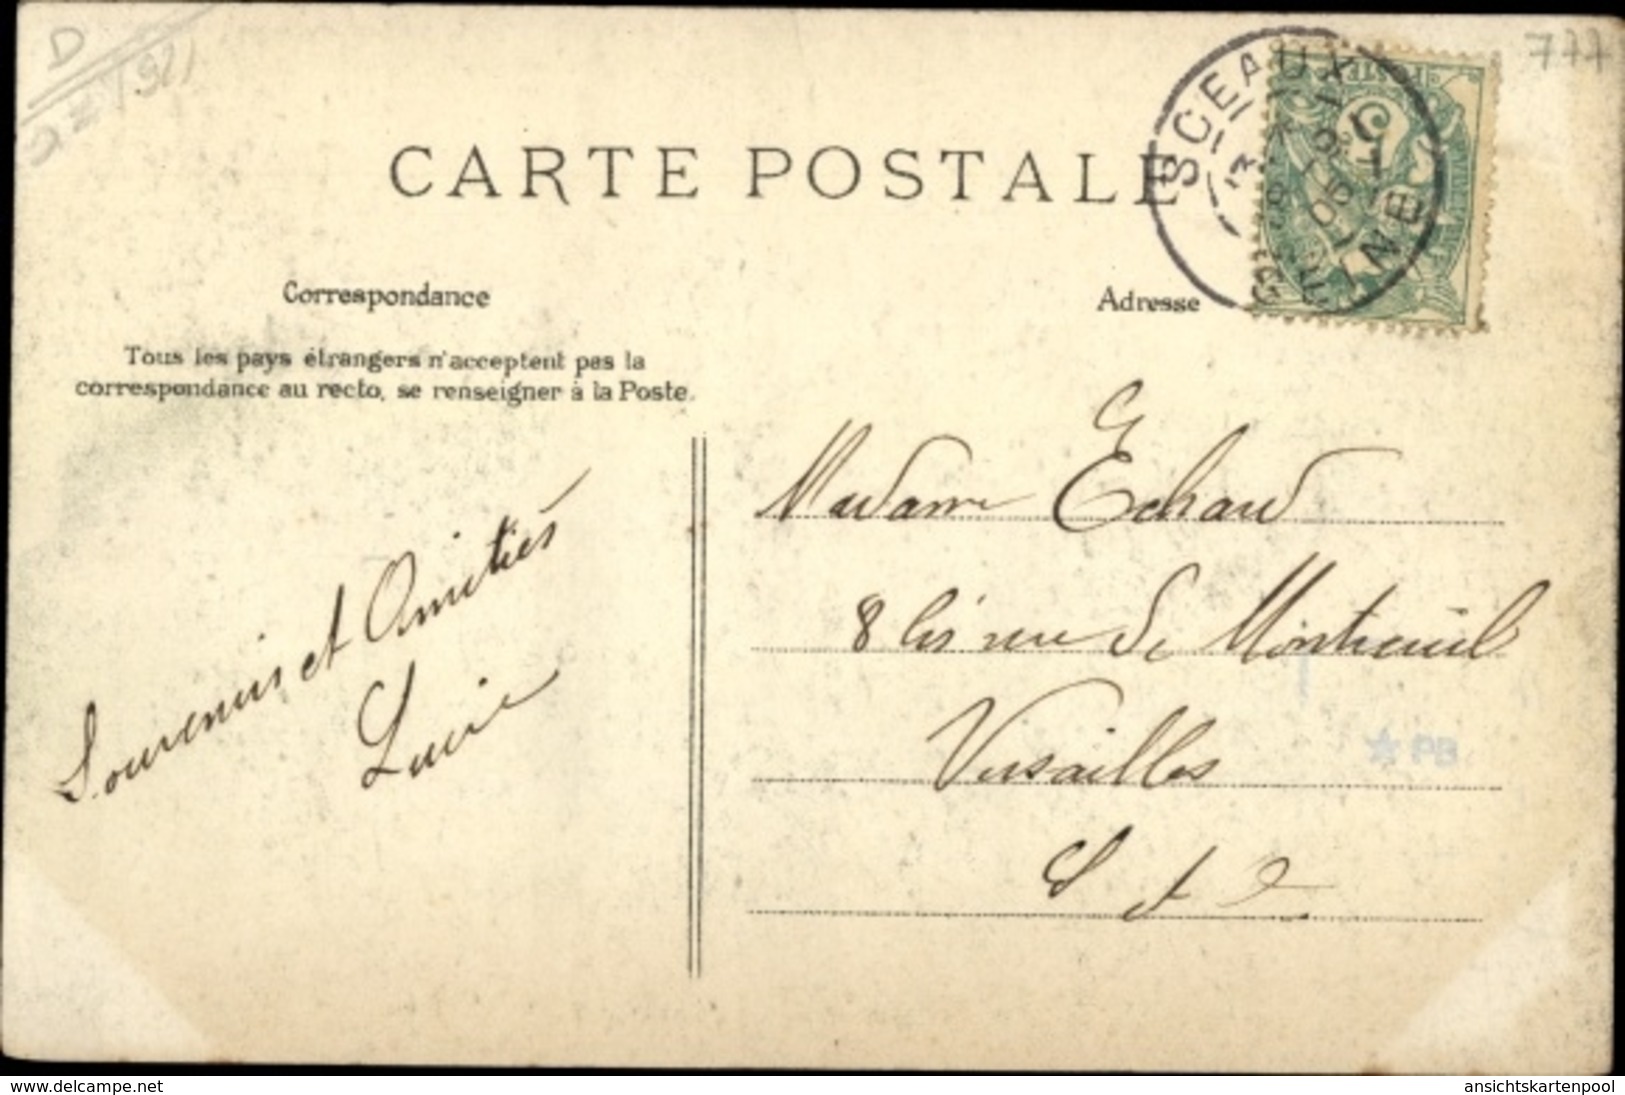 D
777
CARTE POSTALE
SCEAUX
SEINE
Correspondance
Adresse
Tous les pays étrangers n'acceptent pas la
correspondance au recto, se renseigner à la Poste.
Madame Echard
8 bis rue de Montreuil
Versailles
S et O
Souvenirs et Amitiés
Lucie
PB
www.delcampe.net
ansichtskartenpool